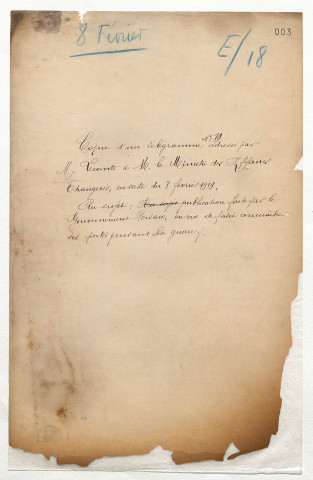 8 Février
E/18
003
Copie d'un télégramme n° 19 adressé par
M. Lecomte à M. le Ministre des Affaires
Etrangères, en date du 7 février 1919.
Au sujet : Au sujet publication faite par le
Gouvernement Persan,
des pertes pendant la guerre.